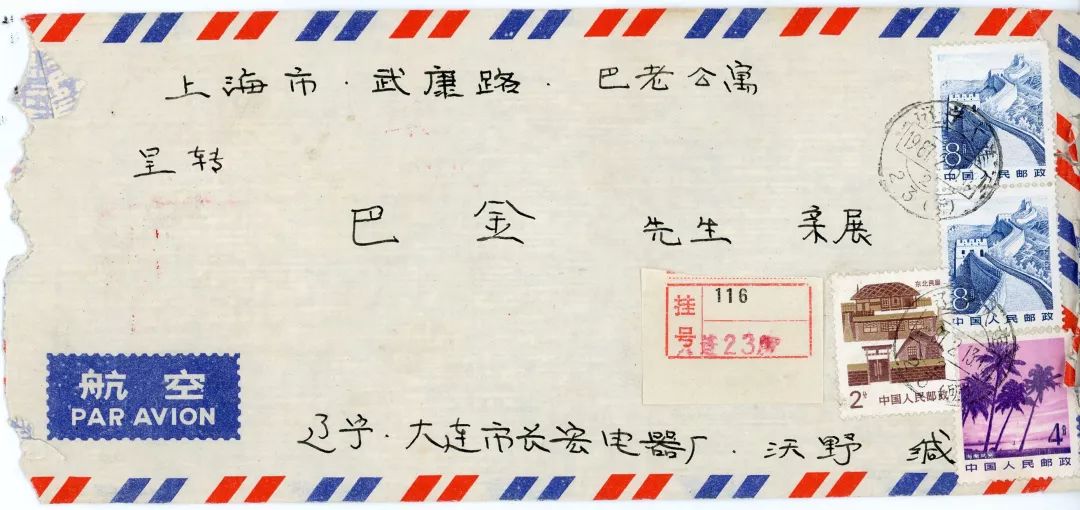 上海市·武康路·巴老公寓
呈转
巴金 先生 亲展
挂号
116
大连23
航空
PAR AVION
辽宁·大连市长宏电器厂·沃野 缄
8分
中国人民邮政
8分
中国人民邮政
东北民居
2分
中国人民邮政
4分
中国人民邮政